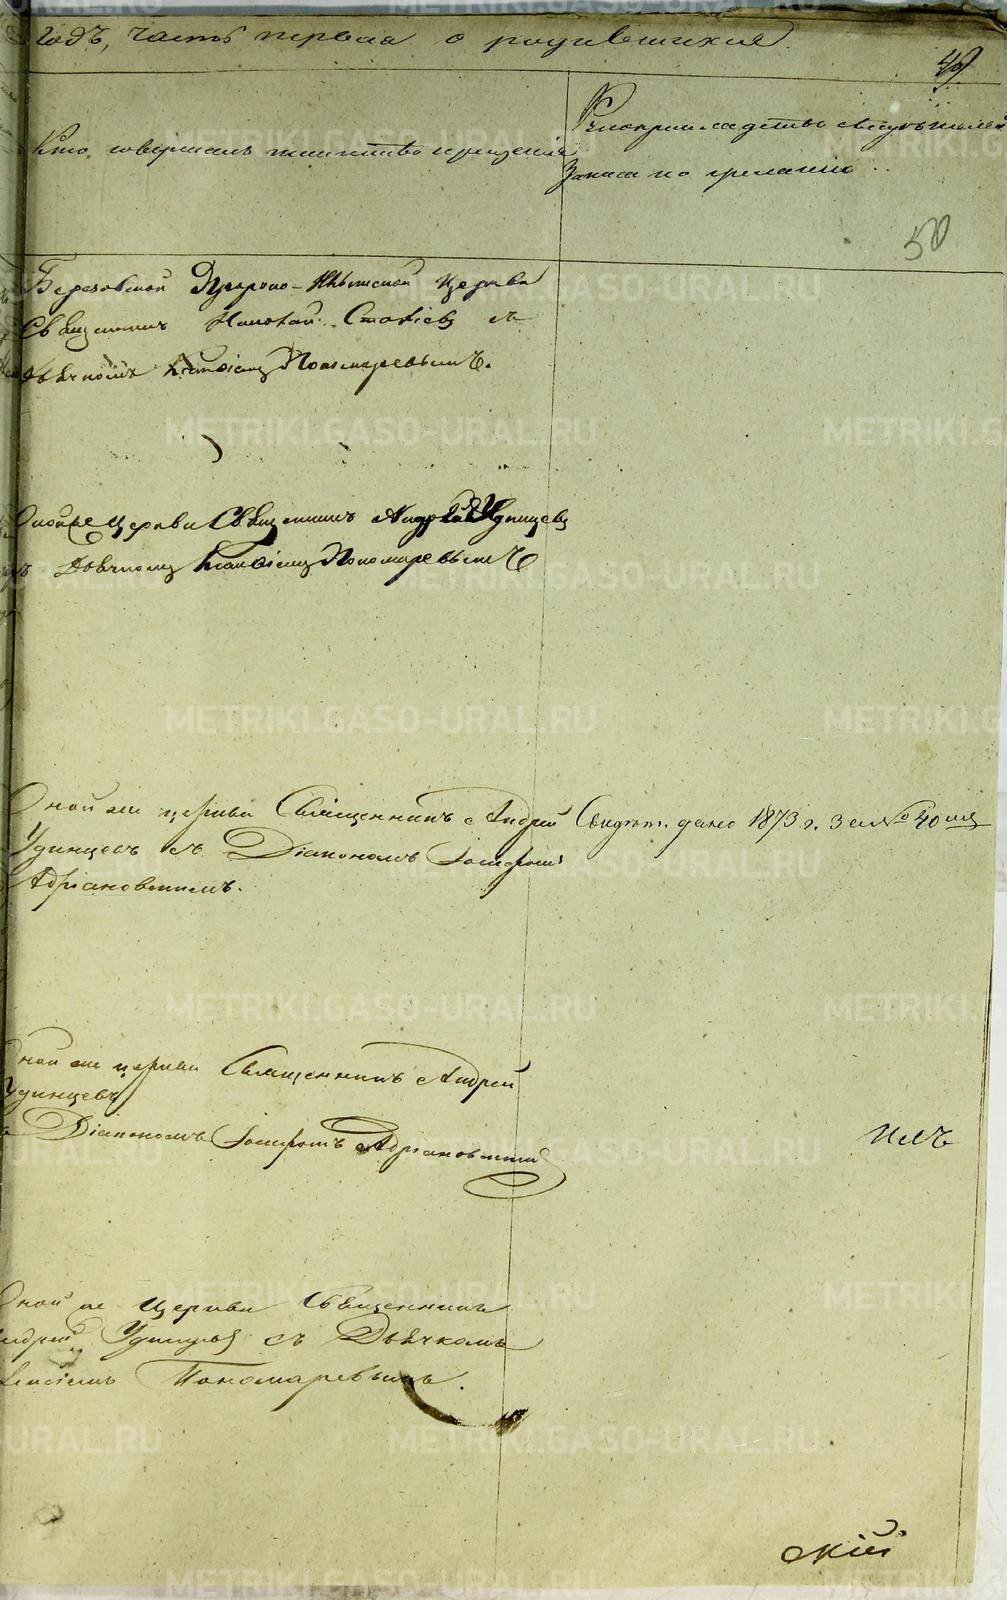 Годъ, часть первая о родившихся.
49
Кто совершалъ таинство крещенія
Рукоприкладство свидѣтелей
записи по желанію
50
Березовской Пророко-Ильинской Церкви
Священникъ Николай с
Дьячкомъ Пономаревымъ.
Оной же Церкви Священникъ Андрей Удинцевъ
съ Дьячкомъ Пономаревымъ
Оной же церкви Священникъ Андрей
Удинцевъ съ Діакономъ Іосифомъ
Адріановскимъ.
Свидѣт. дано 1873 г. за № 40
Оной же церкви Священникъ Андрей
Удинцевъ
съ Діакономъ Іосифомъ Адріановскимъ
Оной же Церкви Священникъ
Андрей Удинцевъ съ Дьячкомъ
Пономаревымъ.
скій
METRIKI.GASO-URAL.RU